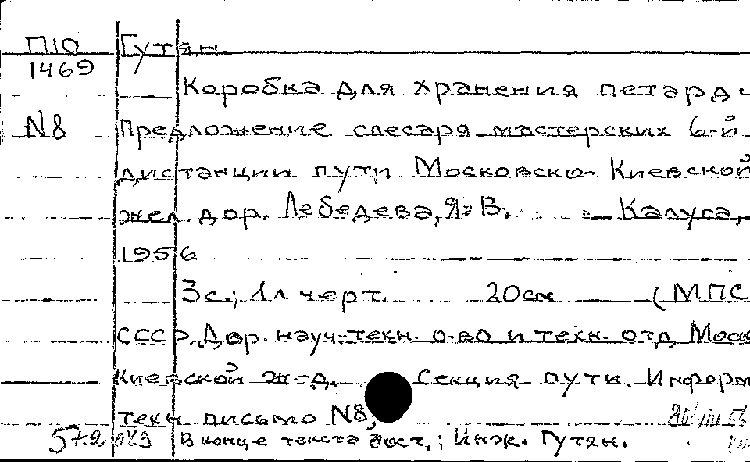 П10 Гутян.
1469
Коробка для хранения петард.
N8 Предложение слесаря мастерских 6-й
дистанции пути Московско-Киевской
жел. дор. Лебедева, Я. В. Калуга,
1956
3 с.; 1 л черт. 20 см (МПС
СССР. Дор. науч.-техн. о-во и техн. отд. Моск
Киевской ж-д. Секция пути. Информ
техн. письмо N8,
572 В конце текста авт.: Инж. Гутян.